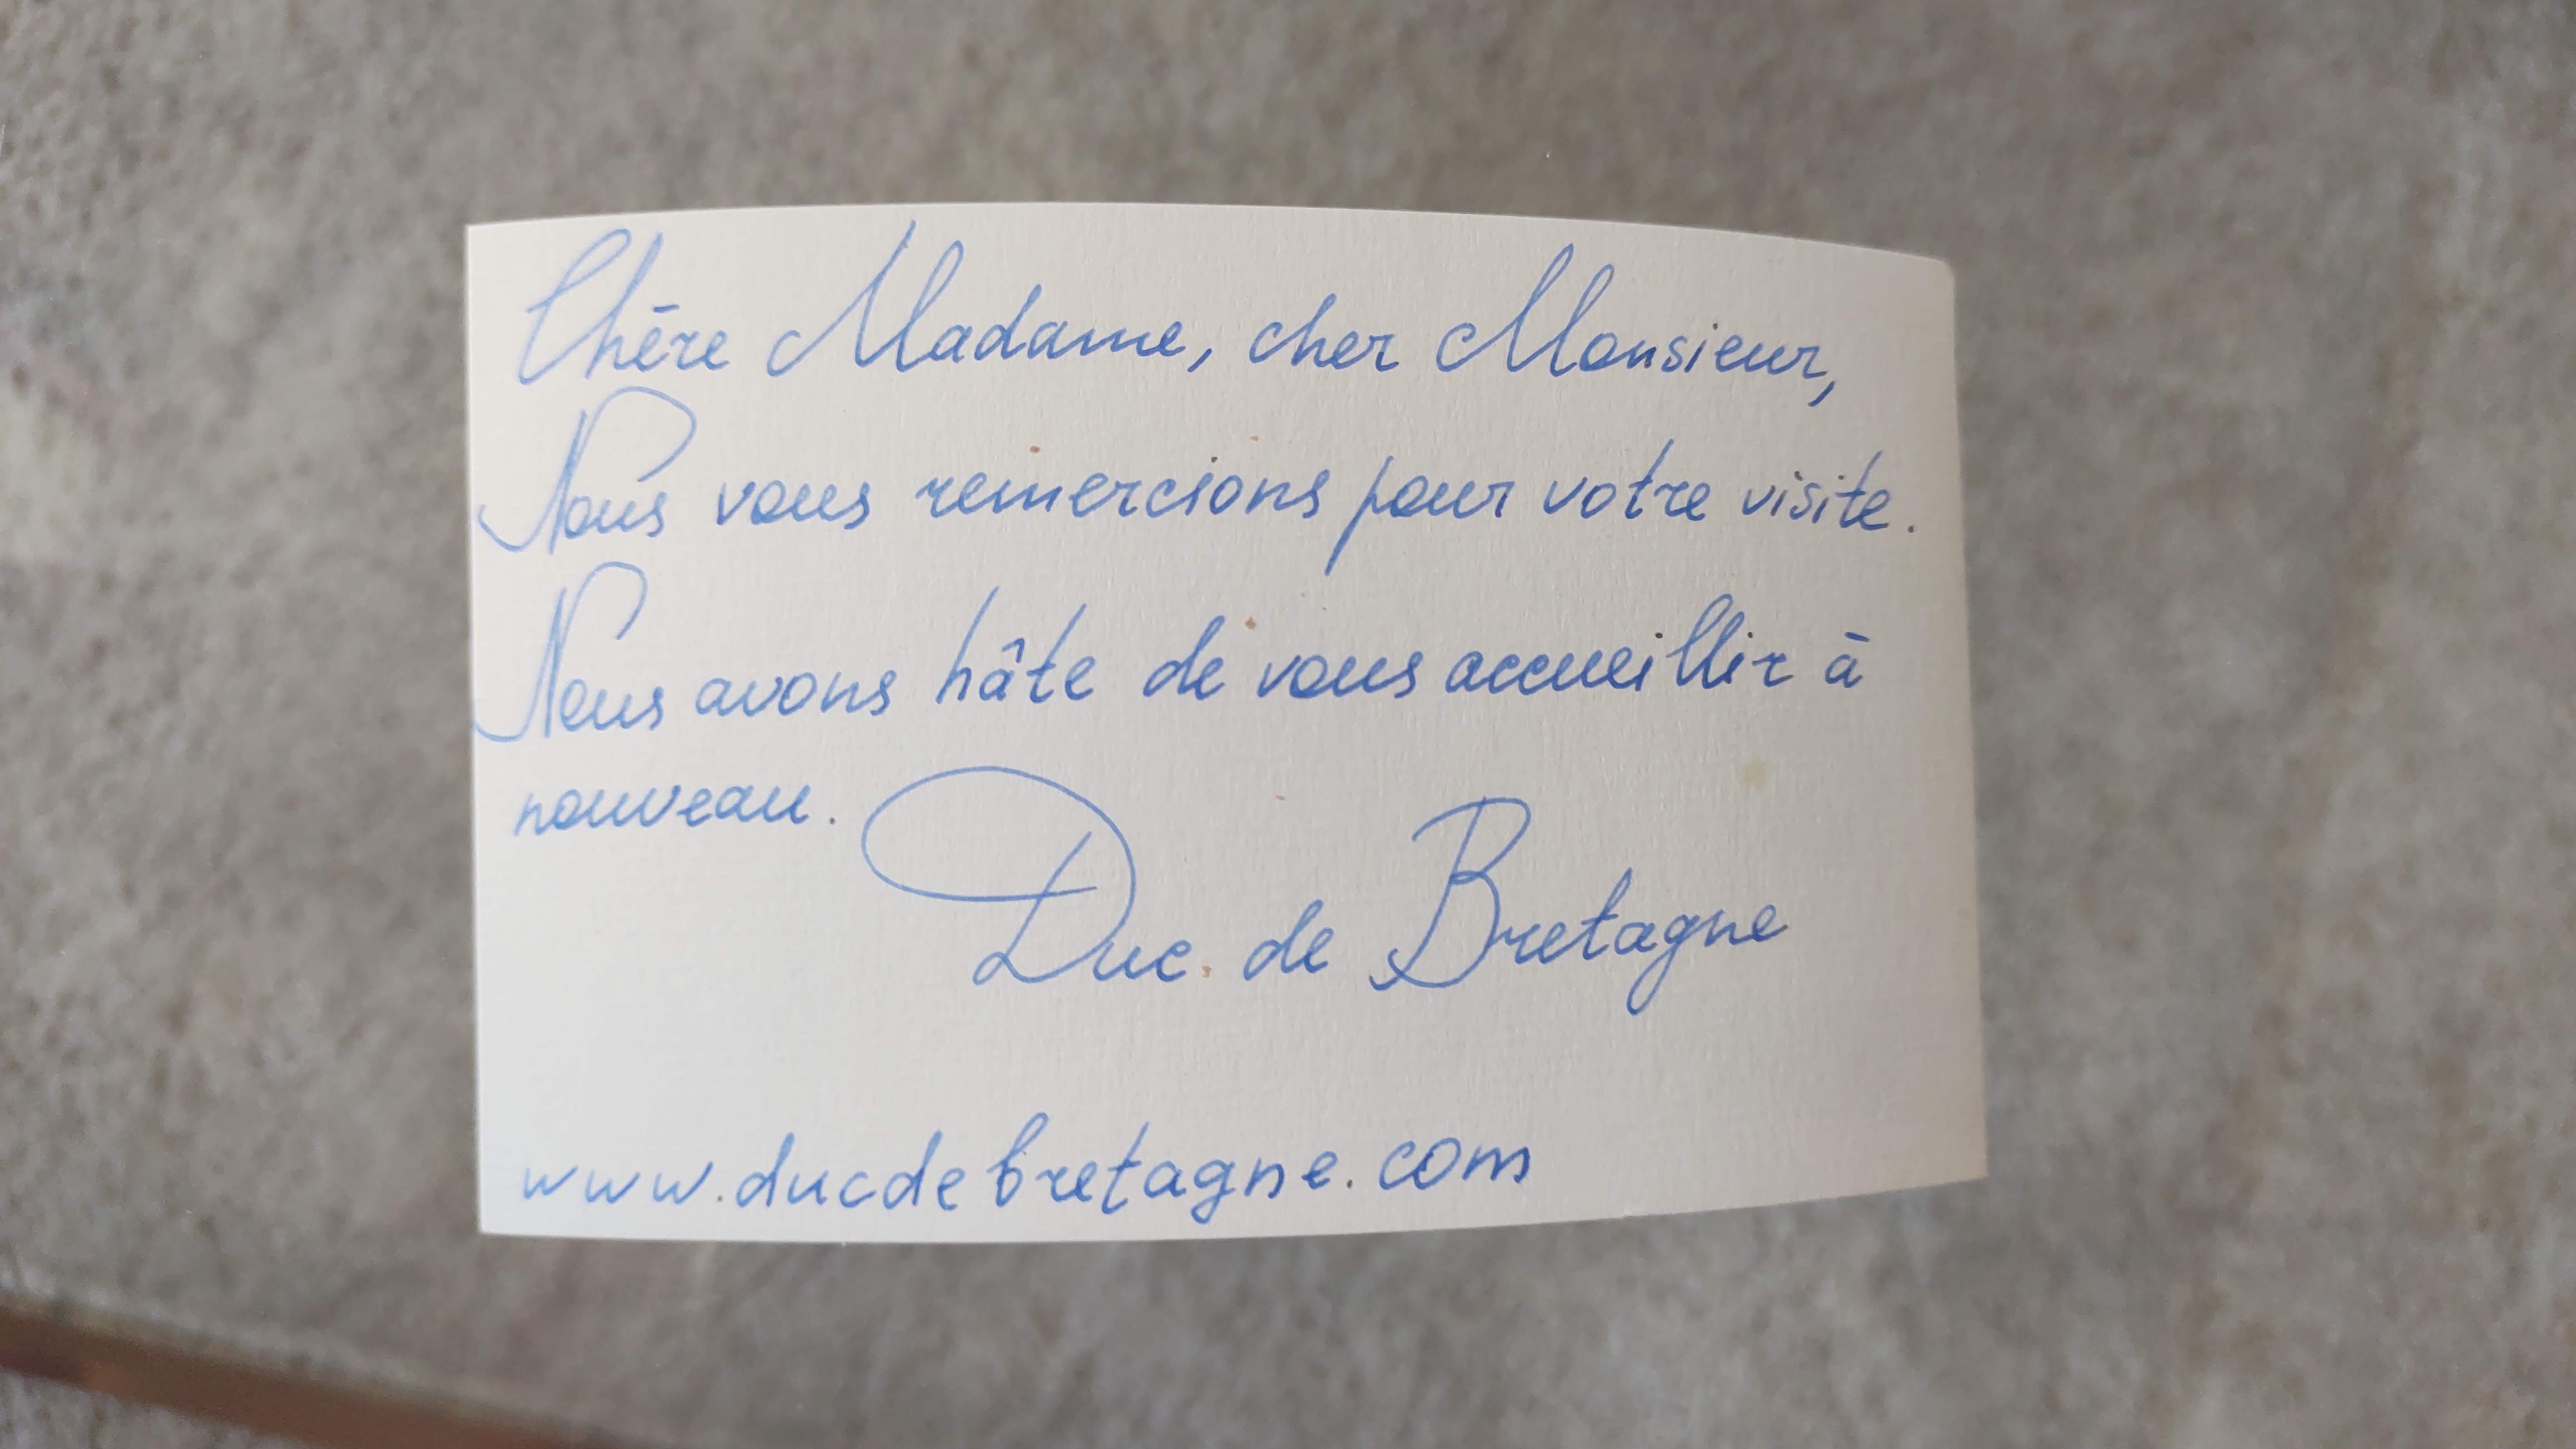 Chère Madame, cher Monsieur,
Nous vous remercions pour votre visite.
Nous avons hâte de vous accueillir à
nouveau.
Duc de Bretagne
www.ducdebretagne.com